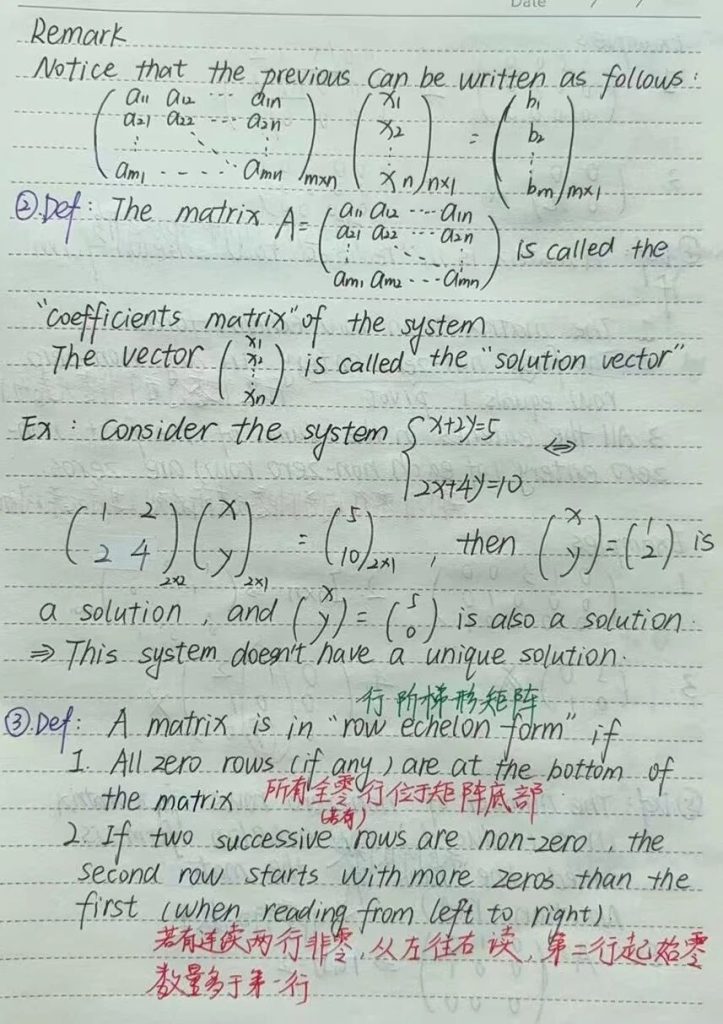 Date / /
Remark
Notice that the previous can be written as follows:
( a11 a12 ... a1n
a21 a22 ... a2n
⋮ ⋱ ⋮
am1 ... amn )m×n ( x1
x2
⋮
xn )n×1 = ( b1
b2
⋮
bm )m×1
②.Def: The matrix A= ( a11 a12 ... a1n
a21 a22 ... a2n
⋮ ⋱ ⋮
am1 am2 ... amn ) is called the
"coefficients matrix" of the system
The vector ( x1
x2
⋮
xn ) is called the "solution vector"
Ex: Consider the system { x+2y=5
2x+4y=10 ⇔
( 1 2
2 4 )2×2 ( x
y )2×1 = ( 5
10 )2×1 , then ( x
y ) = ( 1
2 ) is
a solution, and ( x
y ) = ( 5
0 ) is also a solution.
⇒ This system doesn't have a unique solution.
行阶梯形矩阵
③.Def: A matrix is in "row echelon form" if
1. All zero rows (if any) are at the bottom of
the matrix 所有全零行位于矩阵底部
(若有)
2. If two successive rows are non-zero, the
second row starts with more zeros than the
first (when reading from left to right).
若有连续两行非零,从左往右读,第二行起始零
数量多于第一行